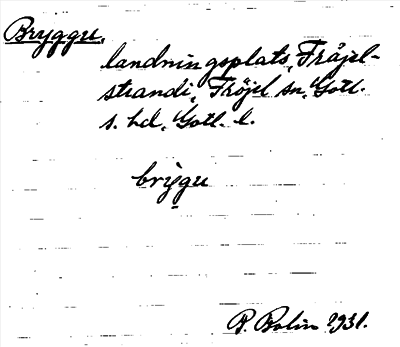 Bryggu,
landningsplats, Fröjel-
strandi, Fröjel sn, Gotl.
s. hd, Gotl. l.
brygu
B. Bolin 1931.